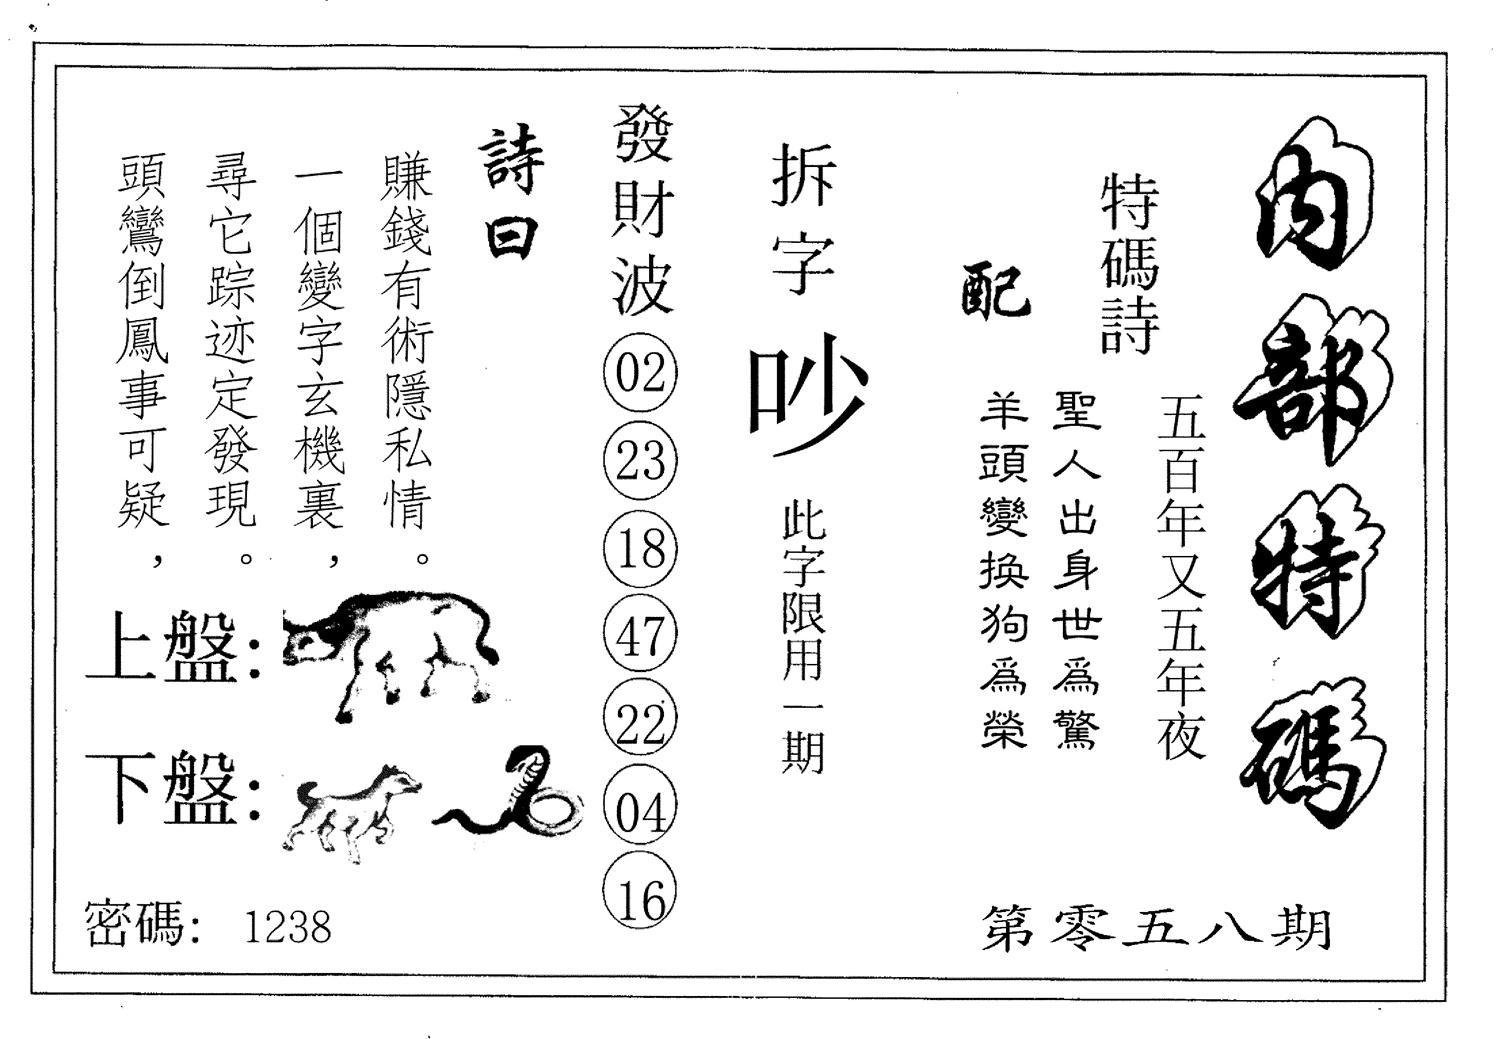 内部特碼
第零五八期
特碼詩
五百年又五年夜
配
聖人出身世爲驚
羊頭變换狗爲榮
拆字
吵
此字限用一期
發財波
02
23
18
47
22
04
16
詩曰
賺錢有術隱私情。
一個變字玄機裏，
尋它踪迹定發現。
頭鸞倒鳳事可疑，
上盤：
下盤：
密碼： 1238